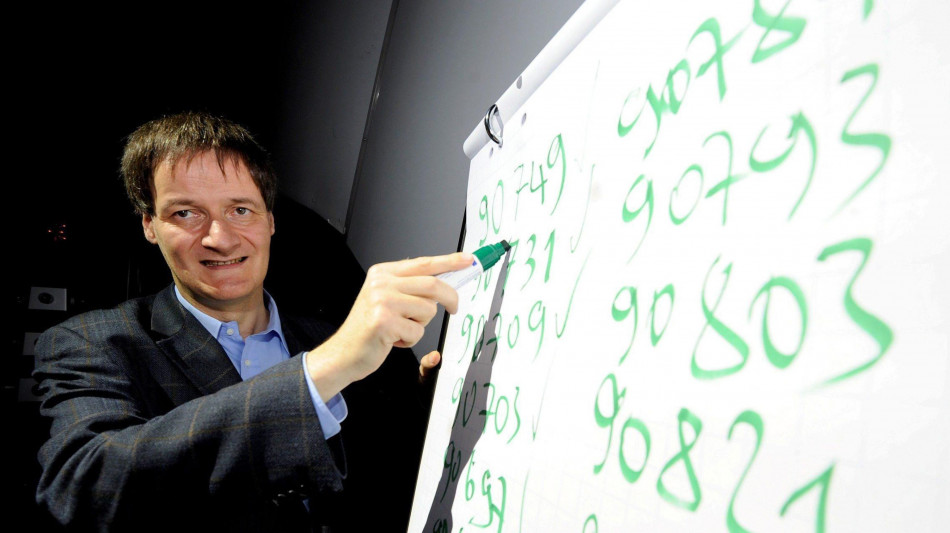 90749
90731
90709
90703
90793
90803
90821